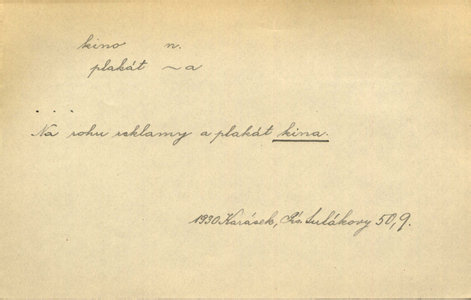 kino n.
plakát ~a
. . .
Na rohu reklamy a plakát kina.
1930 Karásek, Ps. Sulákovy 50, 9.